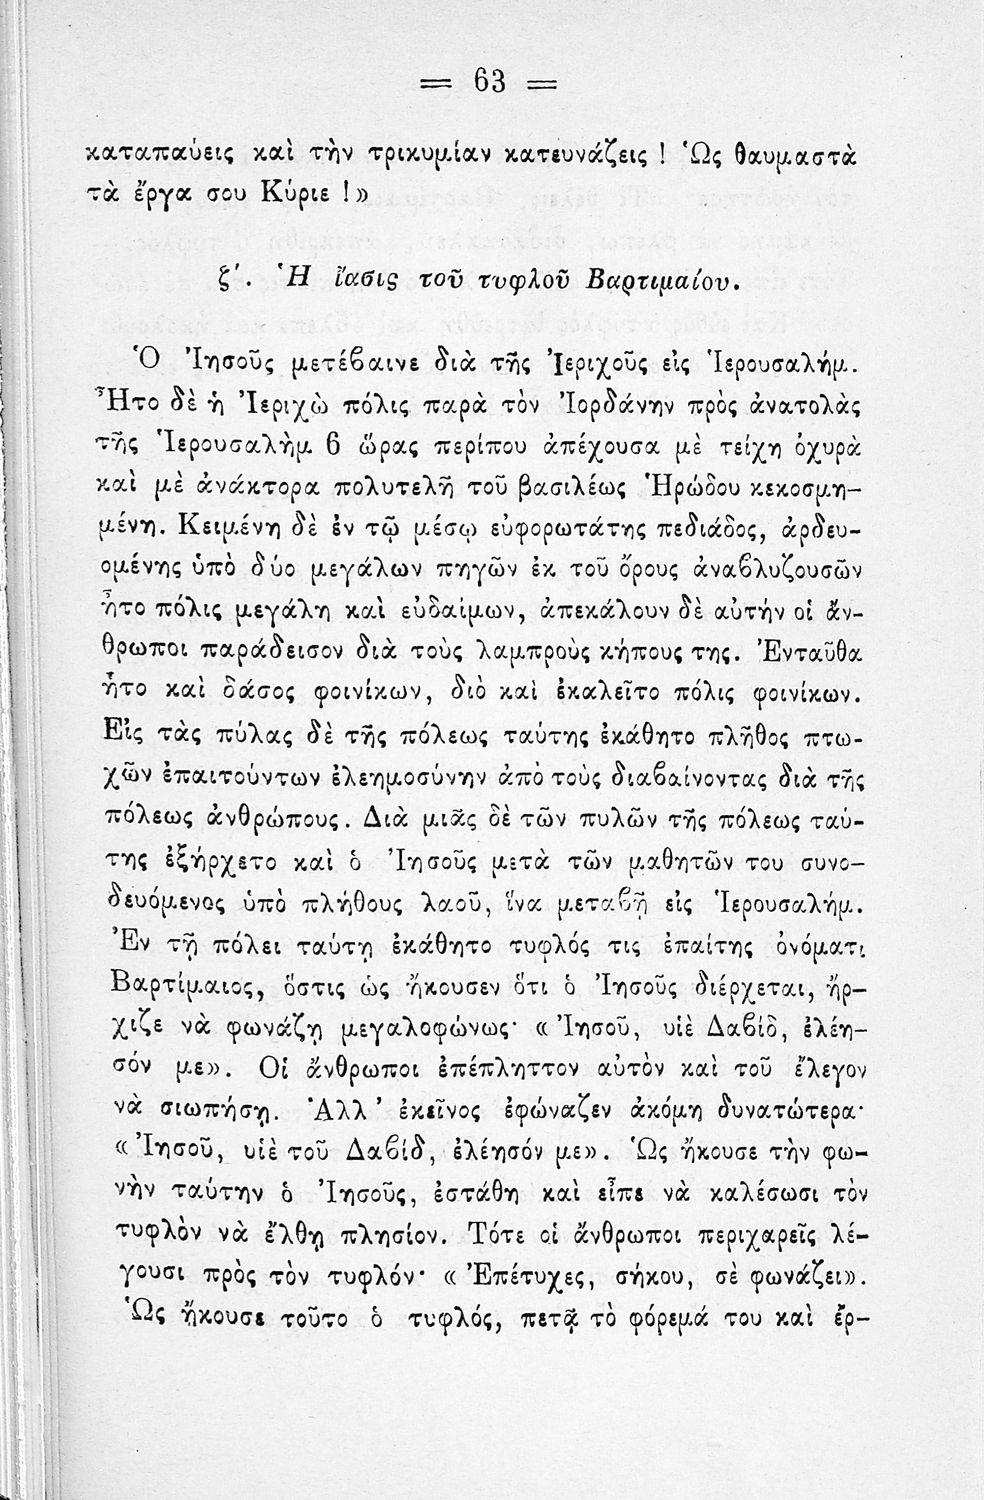 = 63 =
καταπαύεις καὶ τὴν τρικυμίαν κατευνάζεις ! Ὡς θαυμαστὰ
τὰ ἔργα σου Κύριε !»
ζ΄. Ἡ ἴασις τοῦ τυφλοῦ Βαρτιμαίου.
Ὁ Ἰησοῦς μετέβαινε διὰ τῆς Ἰεριχοῦς εἰς Ἱερουσαλήμ.
Ἦτο δὲ ἡ Ἰεριχὼ πόλις παρὰ τὸν Ἰορδάνην πρὸς ἀνατολὰς
τῆς Ἱερουσαλὴμ 6 ὥρας περίπου ἀπέχουσα μὲ τείχη ὀχυρὰ
καὶ μὲ ἀνάκτορα πολυτελῆ τοῦ βασιλέως Ἡρώδου κεκοσμη-
μένη. Κειμένη δὲ ἐν τῷ μέσῳ εὐφορωτάτης πεδιάδος, ἀρδευ-
ομένης ὑπὸ δύο μεγάλων πηγῶν ἐκ τοῦ ὄρους ἀναβλυζουσῶν
ἦτο πόλις μεγάλη καὶ εὐδαίμων, ἀπεκάλουν δὲ αὐτήν οἱ ἄν-
θρωποι παράδεισον διὰ τοὺς λαμπροὺς κήπους της. Ἐνταῦθα
ἦτο καὶ δάσος φοινίκων, διὸ καὶ ἐκαλεῖτο πόλις φοινίκων.
Εἰς τὰς πύλας δὲ τῆς πόλεως ταύτης ἐκάθητο πλῆθος πτω-
χῶν ἐπαιτούντων ἐλεημοσύνην ἀπὸ τοὺς διαβαίνοντας διὰ τῆς
πόλεως ἀνθρώπους. Διὰ μιᾶς δὲ τῶν πυλῶν τῆς πόλεως ταύ-
της ἐξήρχετο καὶ ὁ Ἰησοῦς μετὰ τῶν μαθητῶν του συνο-
δευόμενος ὑπὸ πλήθους λαοῦ, ἵνα μεταβῇ εἰς Ἱερουσαλήμ.
Ἐν τῇ πόλει ταύτῃ ἐκάθητο τυφλός τις ἐπαίτης ὀνόματι
Βαρτίμαιος, ὅστις ὡς ἤκουσεν ὅτι ὁ Ἰησοῦς διέρχεται, ἤρ-
χιζε νὰ φωνάζῃ μεγαλοφώνως· «Ἰησοῦ, υἱὲ Δαβίδ, ἐλέη-
σόν με». Οἱ ἄνθρωποι ἐπέπληττον αὐτὸν καὶ τοῦ ἔλεγον
νὰ σιωπήσῃ. Ἀλλ’ ἐκεῖνος ἐφώναζεν ἀκόμη δυνατώτερα·
«Ἰησοῦ, υἱὲ τοῦ Δαβίδ, ἐλέησόν με». Ὡς ἤκουσε τὴν φω-
νὴν ταύτην ὁ Ἰησοῦς, ἐστάθη καὶ εἶπε νὰ καλέσωσι τὸν
τυφλὸν νὰ ἔλθῃ πλησίον. Τότε οἱ ἄνθρωποι περιχαρεῖς λέ-
γουσι πρὸς τὸν τυφλόν· «Ἐπέτυχες, σήκου, σὲ φωνάζει».
Ὡς ἤκουσε τοῦτο ὁ τυφλός, πετᾷ τὸ φόρεμά του καὶ ἔρ-